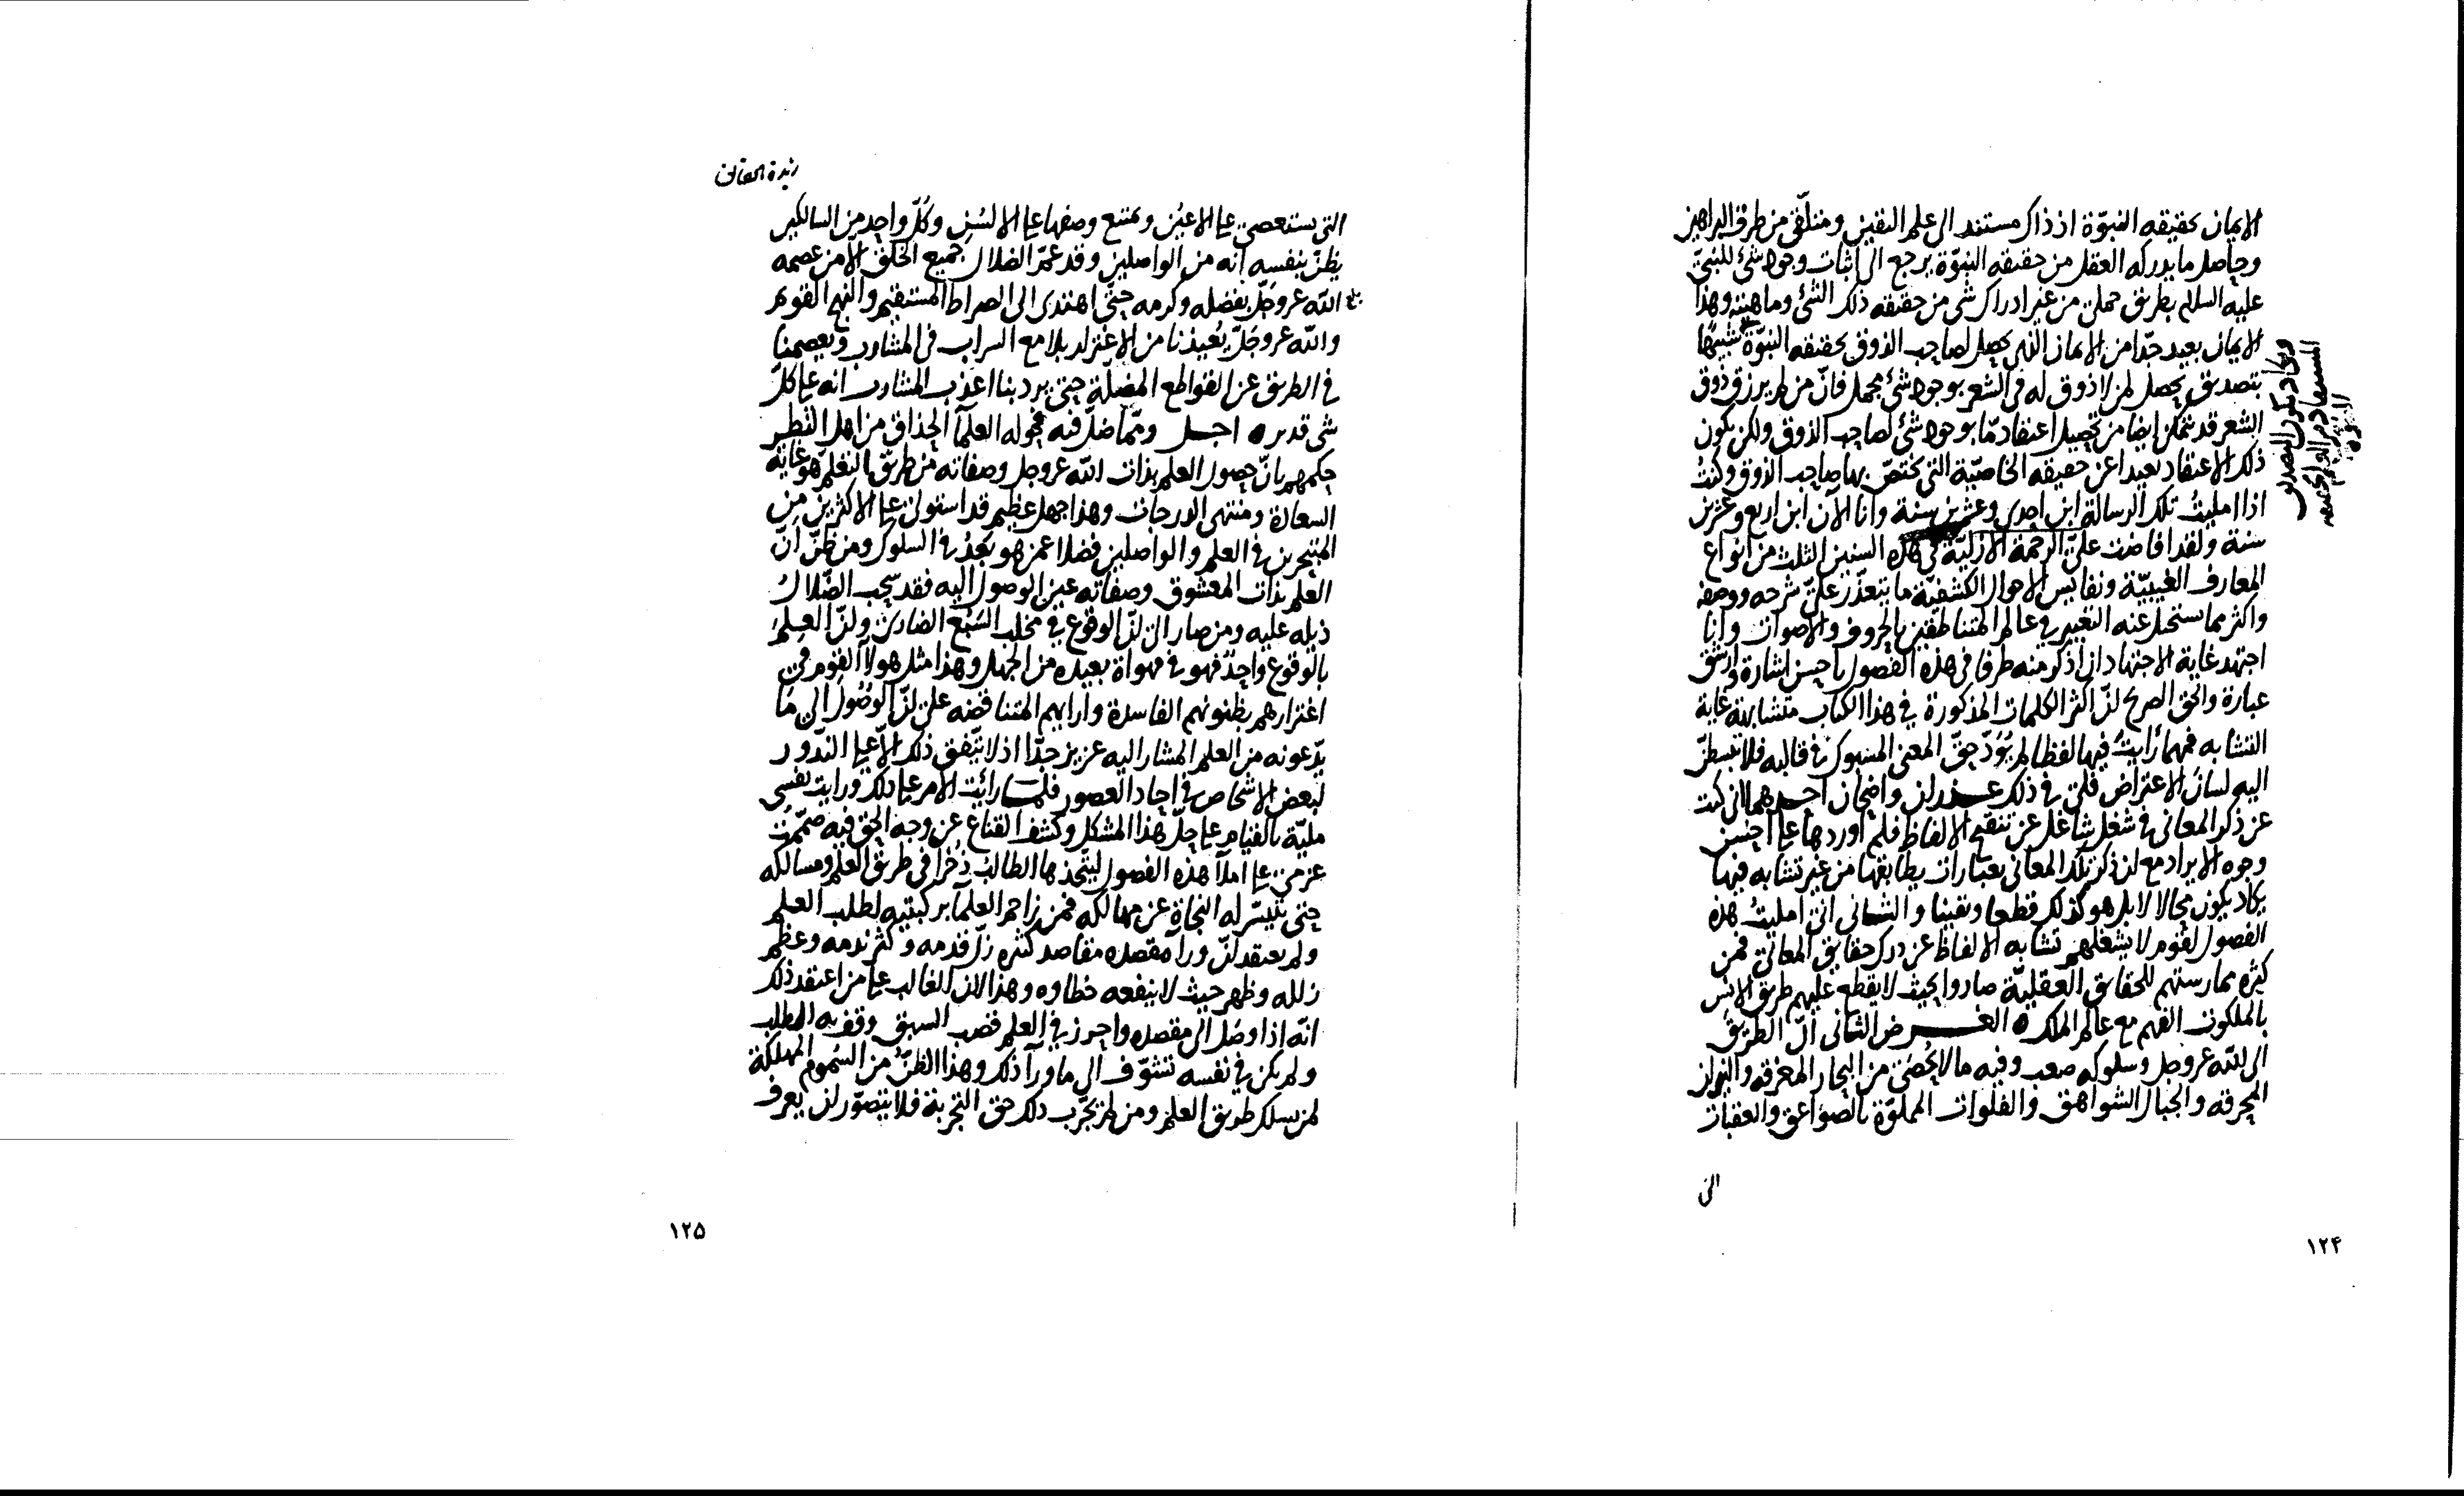 الايمان بحقيقة النبوّة اذ ذاك مستند الى علم اليقين ومتلقّى من طرق البراهين
وحاصل ما يدركه العقل من حقيقة النبوّة يرجع الى اثبات وجود شئ للنبىّ
عليه السلام بطريق جملى من غير ادراك شى من حقيقة ذلك الشئ وماهيته وهذا
الايمان بعيد جدّا من الايمان الذى يحصل لصاحب الذوق بحقيقة النبوّة شبيها
بتصديق يحصل لمن لا ذوق له فى الشعر بوجود شئ مجمل فانّ من لم يرزق ذوق
الشعر قد يتمكن ايضا من تحصيل اعتقاد مّا بوجود شئ لصاحب الذوق ولكن يكون
ذلك الاعتقاد بعيدا عن حقيقة الخاصّية التى يختصّ بها صاحب الذوق وكنت
اذا امليتُ تلك الرسالة ابن احدى وعشرين سنة وانا الآن ابن اربع وعشرين
سنة ولقد افاضت علىّ الرحمة الازليّة فى هذه السنين الثلث من انواع
المعارف الغيبيّة ونفايس الاحوال الكشفيّة ما يتعذّر علىّ شرحه ووصفه
واكثر مما يستحيل عنه التعبير فى عالم المتناطقين بالحروف والاصوات وانا
اجتهد غاية الاجتهاد ان اذكر منه طرفا فى هذه الفصول باحسن اشارة وارشق
عبارة والحق الصريح انّ اكثر الكلمات المذكورة فى هذا الكتاب متشابهة غاية
التشابه فمهما رأيتَ فيها لفظا لم يُؤدّ حقّ المعنى المسبوك فى قالبه فلا تبسطنّ
اليه لسان الاعتراض فلى فى ذلك عذران واضحان احدهما انى كنت
عن ذكر المعانى فى شغل شاغل عن تنقيح الالفاظ فلم اوردها على احسن
وجوه الايراد مع ان ذكر تلك المعانى بعبارات يطابقها من غير تشابه فيها
يكاد يكون محالا لا بل هو كذلك قطعا ويقينا والثانى انى امليتُ هذه
الفصول لقوم لا يشغلهم تشابه الالفاظ عن درك حقايق المعانى فمن
كثرة ممارستهم للحقايق العقليّة صاروا بحيث لا يقطع عليهم طريق الانس
بالملكوت الفهم مع عالم الملك ه الغرض الثانى انّ الطريق
الى الله عزوجل وسلوكه صعب وفيه ما لا يُحصَى من البحار المغرقة والنيران
المحرقة والجبال الشواهق والفلوات المملوّة بالصواعق والعقبات
الى
۱۲۴
زبدة الحقائق
التى يستعصى على الاعين ويمتنع وصفها على الالسُنِ وكُلّ واحد من السالكين
يظنّ بنفسه انه من الواصلين وقد عمّ الضلال جميع الخلق الا من عصمه
الله عزوجلّ بفضله وكرمه حتى اهتدى الى الصراط المستقيم والنهج القويم
والله عزوجلّ يُعيذنا من الاغترار بلامع السراب فى المشارب ويعصمنا
فى الطريق عن القواطع المضلّة حتى يردبنا اعذب المشارب انه على كلّ
شى قدير ه اجل وممّا ضلّ فيه فحولة العلمآ الحذاق من اهل النظر
حكمهم بانّ حصول العلم بذات الله عزوجل وصفاته من طريق التعلم هو غاية
السعادة ومنتهى الدرجات وهذا جهل عظيم قد استولى على الاكثرين من
المتبحرين فى العلم والواصلين فضلا عمن هو بَعدُ فى السلوك ومن ظنّ انّ
العلم بذات المعشوق وصفاته عين الوصول اليه فقد سحب الضلالُ
ذيله عليه ومن صار الى انّ الوقوع فى مخلب السَبُع الضارى وانّ العِلم
بالوقوع واحدٌ فهو فى مهواة بعيده من الجهل وهذا مثل هولآ القوم فى
اغترارهم بظنونهم الفاسدة وارايهم المتناقضه على انّ الوصُول الى ما
يدّعونه من العلم المشار اليه عزيز جدّا اذ لا يتّفق ذلك الّا على الندُور
لبعض الاشخاص فى احاد العصور فلما رأيت الامر على ذلك ورايت نفسى
مليّة بالقيام على حلّ هذا المشكل وكشف القناع عن وجه الحق فيه صمّمت
عزمى على املآ هذه الفصول ليتّخذها الطالب ذُخرا فى طريق العلم ومسالكه
حتى تتيسّر له النجاة عن مهالكه فمن زاحم العلمآ بركبتيه لطلب العلم
ولم يعتقد انّ ورآ مقصده مقاصد كثيره زلّ قدمه وكثر ندمه وعظم
زلله وظهر حيث لا ينفعه خطاوه وهذا لان الغالب على من اعتقد ذلك
انّه اذا وصل الى مقصده واحرز فى العلم قصب السبق وقف به المطلب
ولم يكن فى نفسه تشوّف الى ما ورآ ذلك وهذا الظنّ من السُموم المهلكة
لمن يسلك طريق العلم ومن لم يجرّب ذلك حق التجربة فلا يتصوّر ان يعرف
۱۲۵